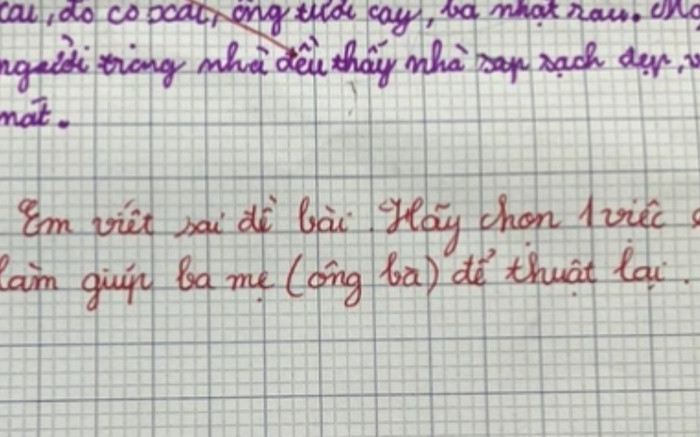 cái, đỏ có xoài, ông tưới cây, bà nhặt rau. Mọ
người trong nhà đều thấy nhà sạp sạch đẹp, v
mát.
Em viết sai đề bài. Hãy chọn 1 việc
làm giúp ba mẹ (ông bà) để thuật lại.